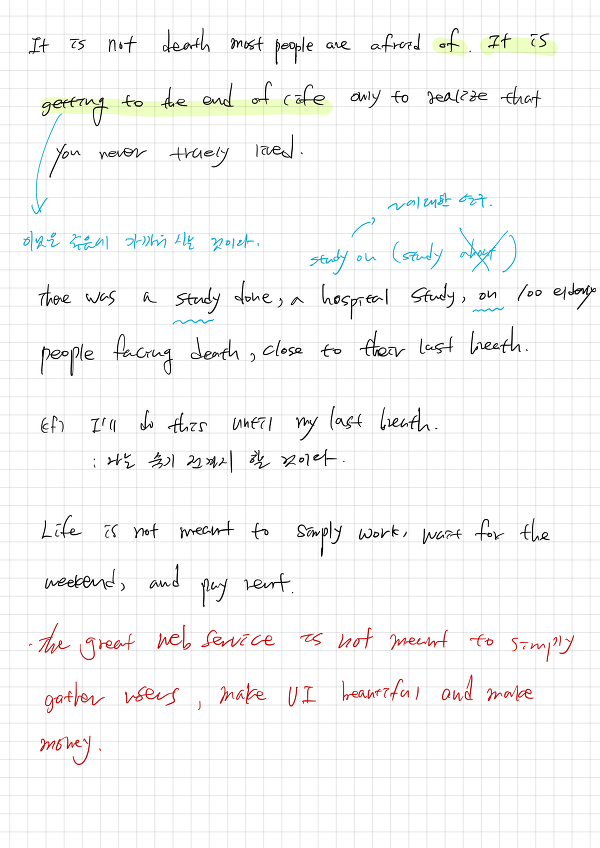 It is not death most people are afraid of. It is
getting to the end of life only to realize that
you never truely lived.
~에 대한 연구.
이것은 죽음에 가까워 지는 것이다.
study on (study about)
there was a study done, a hospital study, on 100 elderly
people facing death, close to their last breath.
cf) I'll do this until my last breath.
: 나는 죽기 전까지 할 것이다.
Life is not meant to simply work, wait for the
weekend, and pay rent.
· the great web service is not meant to simply
gather users, make UI beautiful and make
money.